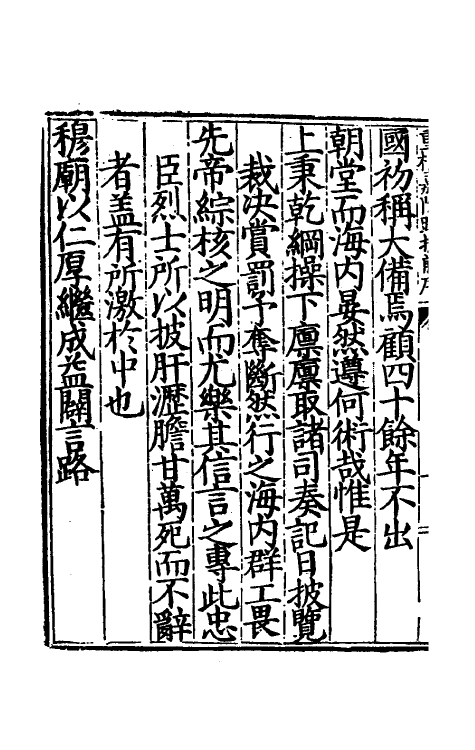 國初稱大備焉顧四十餘年不出
朝堂而海内晏然遵何術哉惟是
上秉乾綱操下廩廩取諸司奏記日披覽
裁决賞罰予奪斷然行之海内群工畏
先帝綜核之明而尤樂其信言之專此忠
臣烈士所以披肝瀝膽甘萬死而不辭
者盖有所激於中也
穆廟以仁厚繼成益闢言路